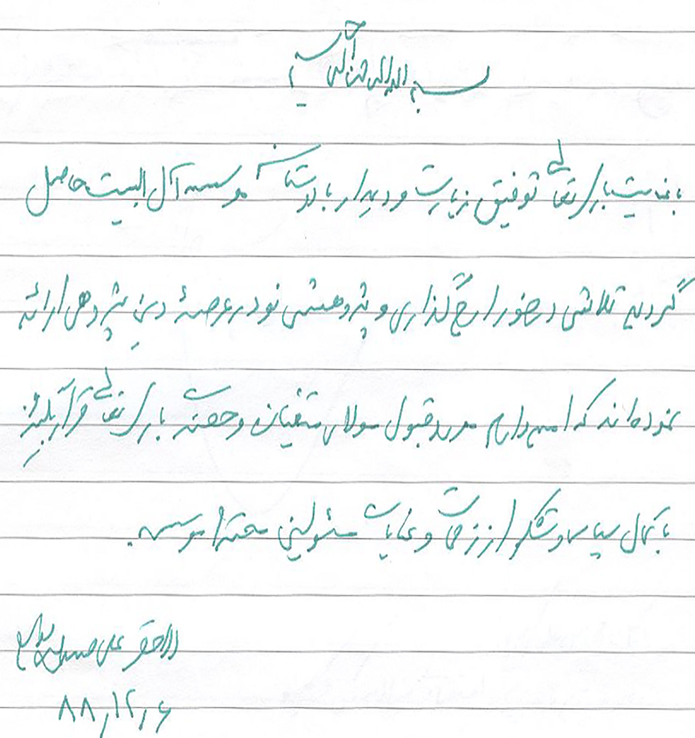 بسم الله الرحمن الرحیم
با عنایت باریتعالی توفیق زیارت و دیدار با دوستان موسسه آل البیت حاصل
گردید تلاشی درخور ارج گذاری و پژوهشی نو در عرصهٔ دین پژوهی ارائه
نموده‌اند که امیدوارم مورد قبول مولای متقیان و حضرت باریتعالی قرار بگیرد
با کمال سپاس و تشکر از زحمات و عنایات مسئولین محترم موسسه.
الاحقر علی
۸۸/۱۲/۶